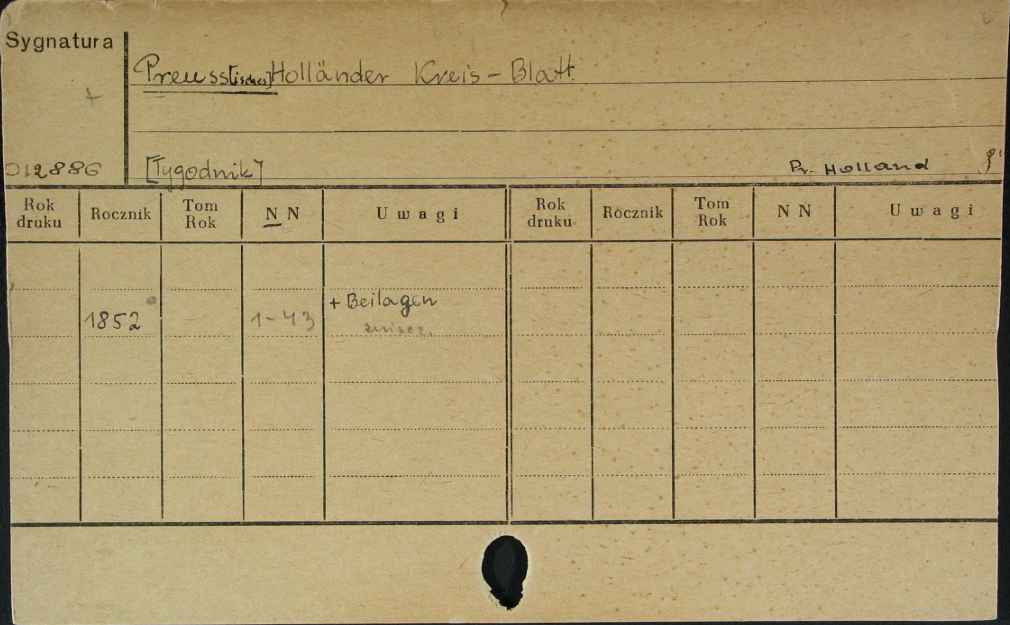 Sygnatura
Preuss[ischer] Holländer Kreis-Blatt
+
012886
[Tygodnik]
Pr. Holland
Rok druku Rocznik Tom Rok N N Uwagi Rok druku Rocznik Tom Rok N N Uwagi
+ Beilagen
1852 1-43